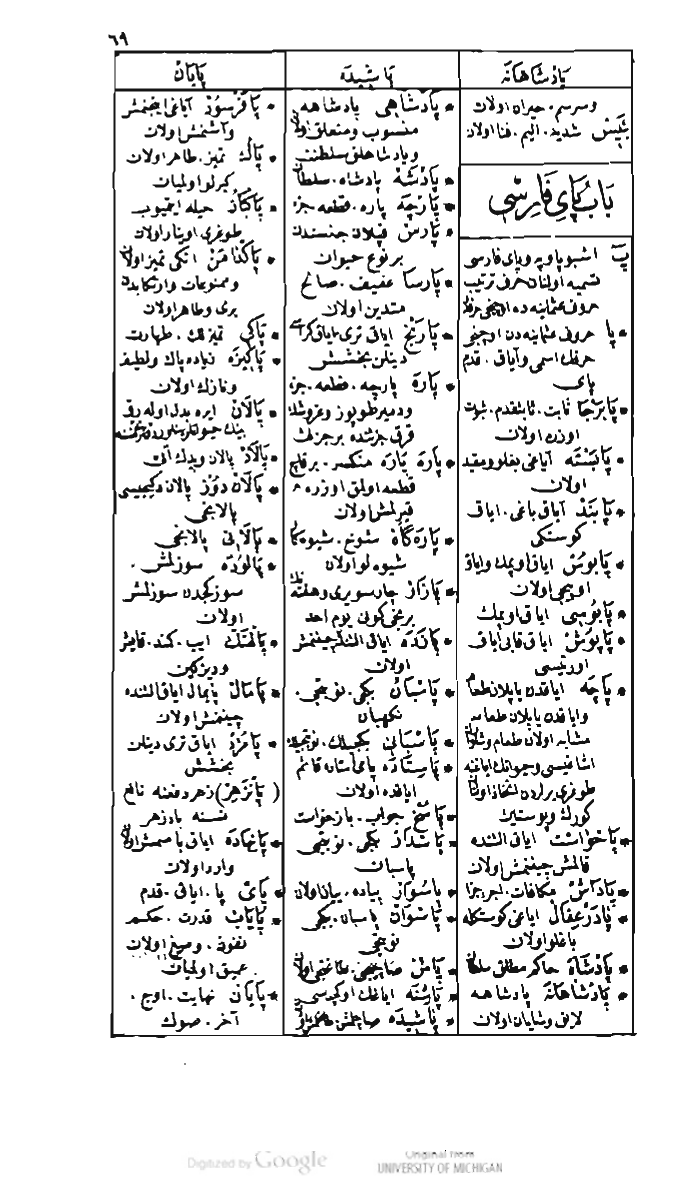 ٦٩
پادشاهانه
پاشیده
پایان
وسرسم. حیران اولات
بئیس شدید. الیم. فنا اولان
باب پای فارسی
پ اشبو پاویه وپای فارسی
تسمیه اولنان حرف ترتیب
حروف عثمانیه ده اوچنجی حرف
• پا حروف عثمانیه دن اوچنجی
حرفك اسمی وآیاق. قدم
پای
• پابرجا ثابت. ثابتقدم. ثبوت
اوزره اولان
• پابسته آیاغی بغلو ومقید
اولان
• پابند آیاق باغی. ایاق
كوستكی
• پابوس ایاق اوپمك وایاق
اوپیجی اولان
• پابوسی ایاق اوپمك
• پاپوش ایاق قابی ایاق
اورتیسی
• پاچه ایاقدن یاپیلان طعام
وایاقدن یاپیلان طعامه
مشابه اولان طعام وشلوار
اشاغیسی وحیوانك ایاغنه
طوغری یرلردن اتخاذ اولنان
كورك وپوستین
• پاخواست ایاق التنده
قالمش چیننمش اولان
• پاداش مكافات. اجر جزا
• پادرعقال ایاغی كوستكله
باغلو اولان
• پادشاه حاكم مطلق سلطان
• پادشاهانه پادشاهه
لایق وشایان اولان
• پادشاهی پادشاهه
منسوب ومتعلق اولان
وپادشاهلق سلطنت
• پادشه پادشاه. سلطان
• پارچه پاره. قطعه جزء
• پارس قپلان جنسندن
برنوع حیوان
• پارسا عفیف. صالح
متدین اولان
• پارنج ایاق تری ایاق كراسی
دینلن بخشش
• پاره پارچه. قطعه. جزء
ودمیر طوپوز وغروشك
قرق جزئنده برجزئی
• پاره پاره منكسر. برقاچ
قطعه اولق اوزره
قیرلمش اولان
• پاره كاه شوخ. شیوه كار
شیوه لو اولان
• پازار چارسو یری وهفته نك
برنجی كونی یوم احد
• پازده ایاق التنده چیننمش
اولان
• پاسبان بكجی. نوبتجی.
نكهبان
• پاسبانی بكجیلك. نوبتجیلك
• پاستاده پای استان قائم
ایاقده اولان
• پاسخ جواب. بازخواست
• پاسدار بكجی. نوبتجی
پاسبان
• پاسوار پیاده. یایان اولان
• پاسوان پاسبان. بكجی
نوبتجی
• پاش صاچیجی. طاغیدیجی اولان
• پاشنه ایاغك اوكچه سی
• پاشیده صاچلمش
• پافرسوز آیاغی اینجنمش
وآشنمش اولان
• پاك تمیز. طاهر اولان
كیرلو اولمیان
• پاكباز حیله ایتمیوب
طوغری اوینار اولان
• پاكدامن اتكی تمیز اولان
وممنوعات وارتكابدن
بری وطاهر اولان
• پاكی تمیزلك. طهارت
• پاكیزه زیاده پاك ولطیف
ونازك اولان
• پالان ایره بدل اوله رق
بینك حیوانلرینه
• پالاد پالان ویدك آتی
• پالان دوز پالان دیكیجیسی
پالانجی
• پالانی پالانجی
• پالوده سوزلمش.
سوزكجدن سوزلمش
اولان
• پالهنك ایپ. كمند. قایش
ودیزكین
• پامال پایمال ایاق التنده
چیننمش اولان
• پامزد ایاق تری دینلن
بخشش
( پانزهر ) زهر دفعنه نافع
نسنه پادزهر
• پانهاده ایاق باصمش اولان
وارد اولان
• پای پا. ایاق. قدم
• پایاب قدرت. حكم
نفوذ. وصیغ اولان
عمیق اولمیان
• پایان نهایت. اوج.
آخر. صوك
Digitized by Google
Original from
UNIVERSITY OF MICHIGAN